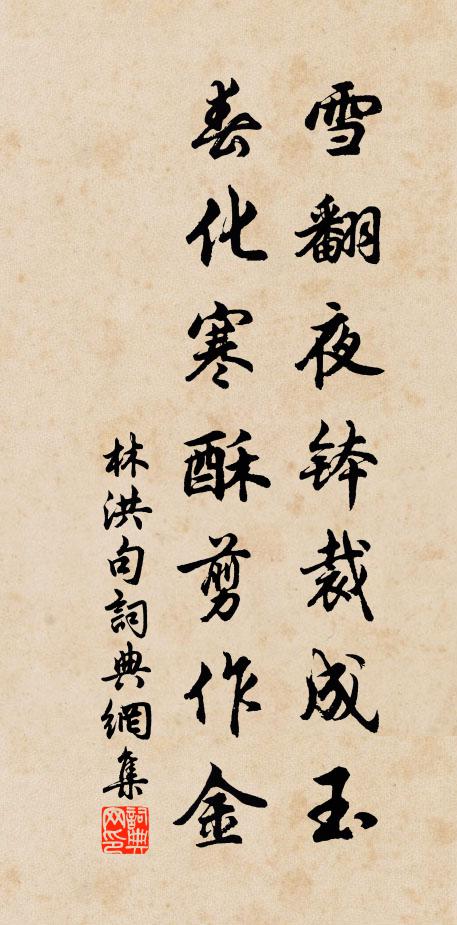 雪翻夜鉢裁成玉
春化寒酥剪作金
林洪句詞典網集
詞典网印